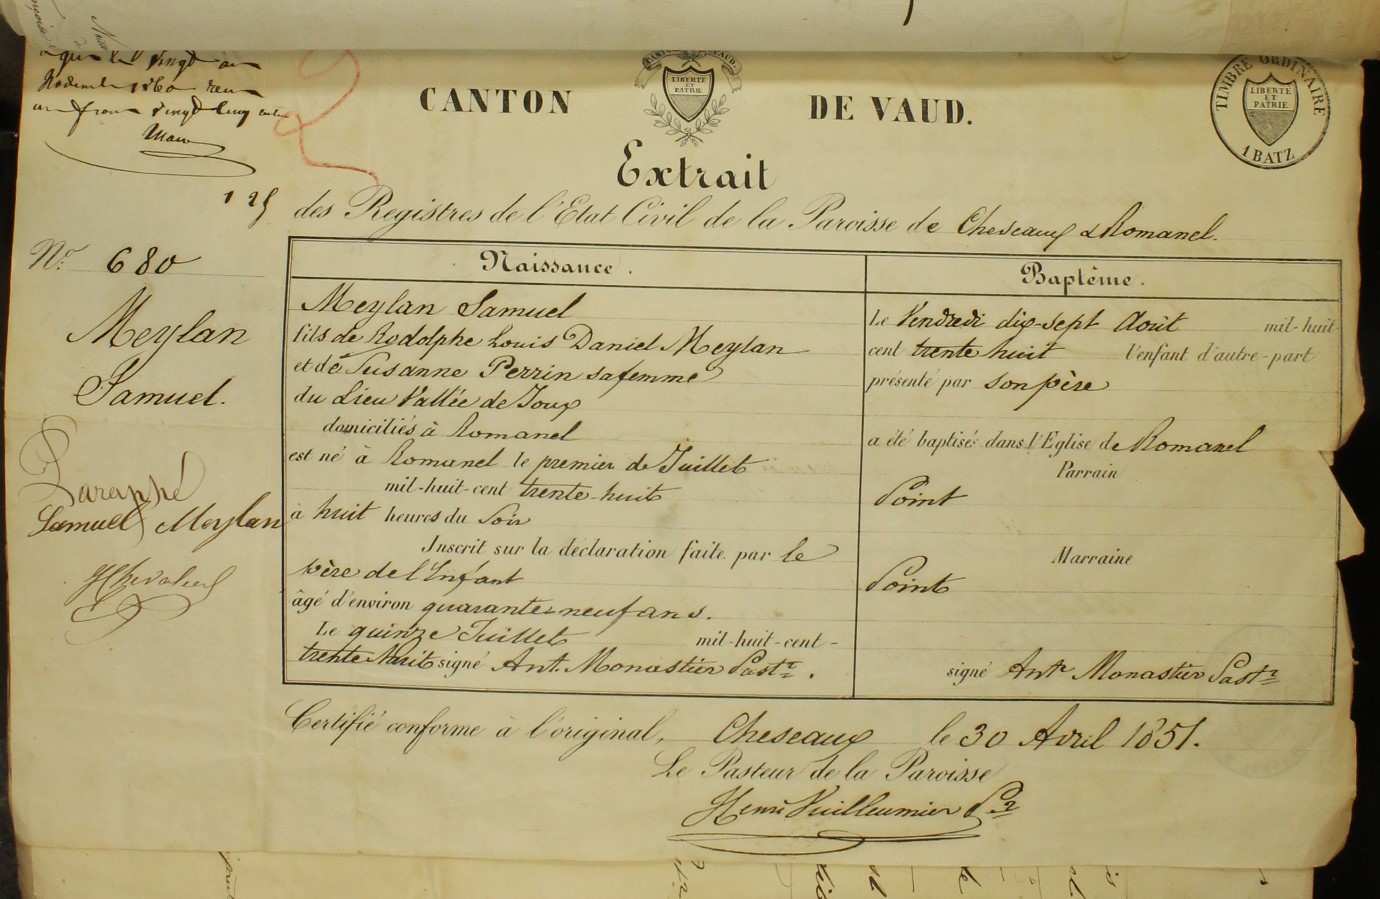 vingt
1860
un franc vingt cinq
1 25
CANTON DE VAUD.
LIBERTÉ
ET
PATRIE
TIMBRE ORDINAIRE
LIBERTÉ
ET
PATRIE
1 BATZ
Extrait
des Registres de l'Etat Civil de la Paroisse de Cheseaux & Romanel.
No. 680
Meylan
Samuel.
Paraphé
Samuel Meylan
Naissance.
Meylan Samuel
fils de Rodolphe Louis Daniel Meylan
et de Susanne Perrin sa femme
du Lieu Vallée de Joux
domiciliés à Romanel
est né à Romanel le premier de Juillet
mil-huit-cent trente-huit
à huit heures du Soir
Inscrit sur la déclaration faite par le
Père de l'Enfant
âgé d'environ quarante-neuf ans.
Le quinze Juillet mil-huit-cent-
trente huit signé Ant. Monastier Past.r
Baptême.
Le Vendredi dix-sept Août mil-huit-
cent trente huit l'enfant d'autre-part
présenté par son père
a été baptisé dans l'Eglise de Romanel
Parrain
Point
Marraine
Point
signé Ant.e Monastier Past.r
Certifié conforme à l'original, Cheseaux le 30 Avril 1851.
Le Pasteur de la Paroisse
Henri Vuilleumier P.r